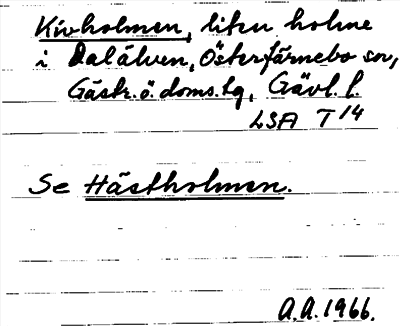 Kivholmen, liten holme
i Dalälven, Österfärnebo sn,
Gästr. ö. doms.sg, Gävl. l.
LSA T 14
Se Hästholmen.
A.A. 1966.